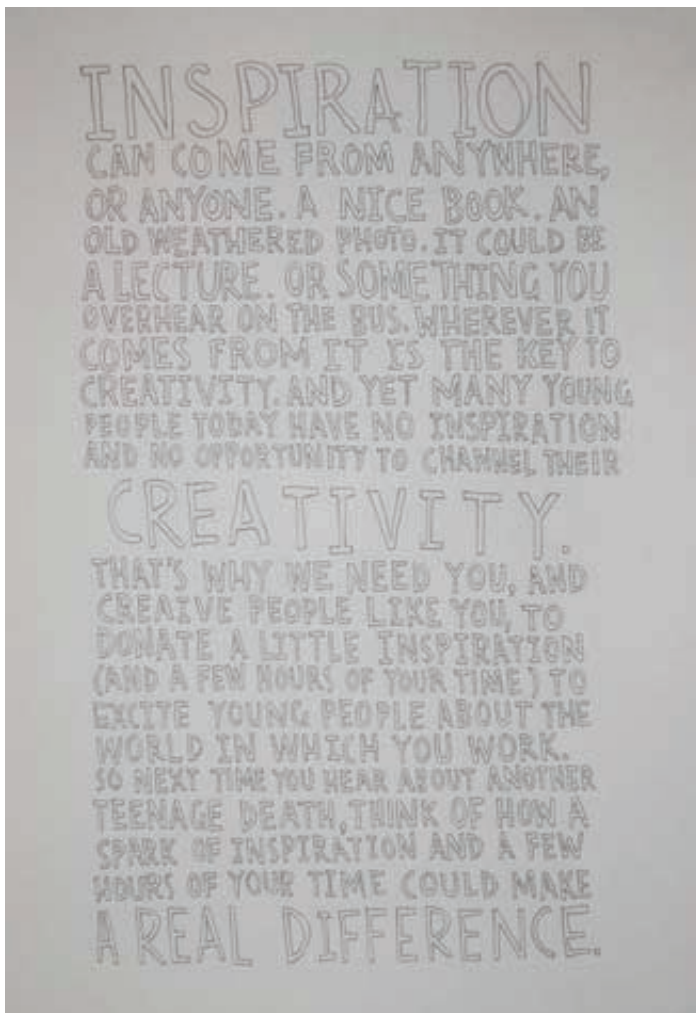 INSPIRATION
CAN COME FROM ANYWHERE,
OR ANYONE. A NICE BOOK. AN
OLD WEATHERED PHOTO. IT COULD BE
A LECTURE. OR SOMETHING YOU
OVERHEAR ON THE BUS. WHEREVER IT
COMES FROM IT IS THE KEY TO
CREATIVITY. AND YET MANY YOUNG
PEOPLE TODAY HAVE NO INSPIRATION
AND NO OPPORTUNITY TO CHANNEL THEIR
CREATIVITY.
THAT'S WHY WE NEED YOU, AND
CREAIVE PEOPLE LIKE YOU, TO
DONATE A LITTLE INSPIRATION
(AND A FEW HOURS OF YOUR TIME) TO
EXCITE YOUNG PEOPLE ABOUT THE
WORLD IN WHICH YOU WORK.
SO NEXT TIME YOU HEAR ABOUT ANOTHER
TEENAGE DEATH, THINK OF HOW A
SPARK OF INSPIRATION AND A FEW
HOURS OF YOUR TIME COULD MAKE
A REAL DIFFERENCE.